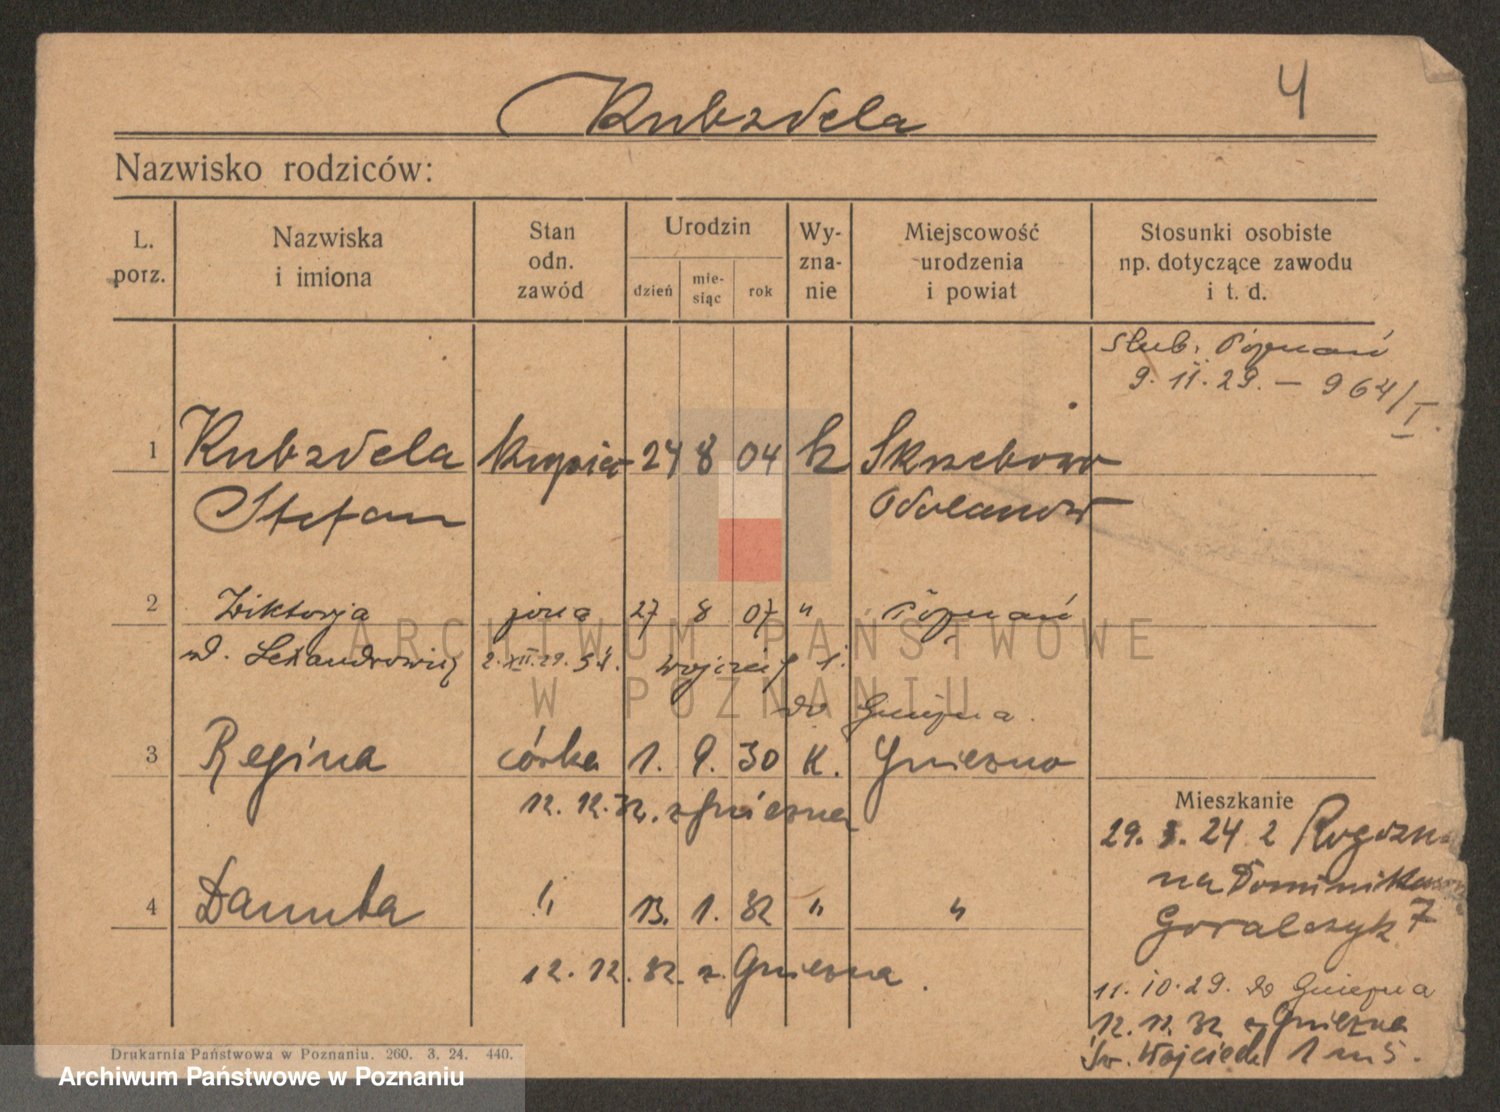 Kubzdela
4
Nazwisko rodziców:
L. porz.
Nazwiska i imiona
Stan odn. zawód
Urodzin
dzień
mie-siąc
rok
Wy-zna-nie
Miejscowość urodzenia i powiat
Stosunki osobiste np. dotyczące zawodu i t. d.
ślub. Poznań
9. II. 29. — 964/I.
1 Kubzdela kupiec 24 8 04 k Skrzebowo
Stefan Odolanów
2 Wiktorja żona 27 8 07 " Poznań
2. XII. 29. Św. Wojciech 1.
do Gniezna.
3 Regina córka 1. 9. 30 K. Gniezno
12. 12. 32. z Gniezna
4 Danuta " 13. 1. 32 " "
12. 12. 32. z Gniezna.
Mieszkanie
24 2
na
Goralczyk 7
11. 10. 29. do Gniezna
12. 12 32 z Gniezna
Św. Wojciech 1 m 5.
Drukarnia Państwowa w Poznaniu. 260. 3. 24. 440.
ARCHIWUM PAŃSTWOWE
W POZNANIU
Archiwum Państwowe w Poznaniu